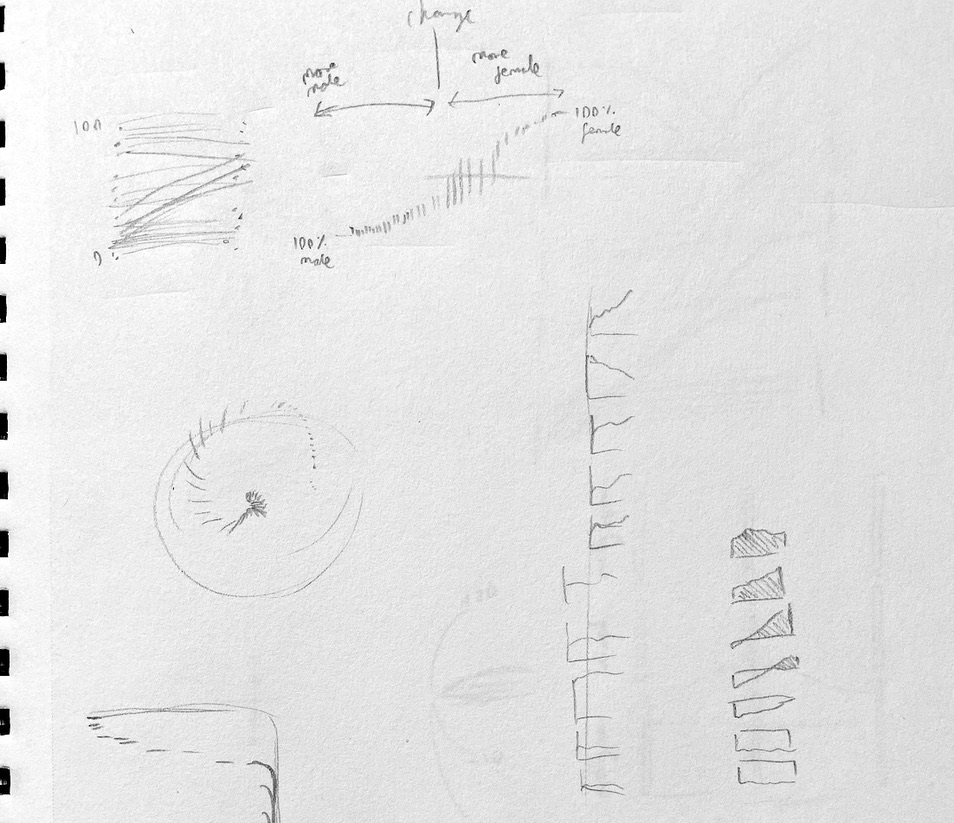 change
more
male
more
female
100
0
100%
female
100%
male